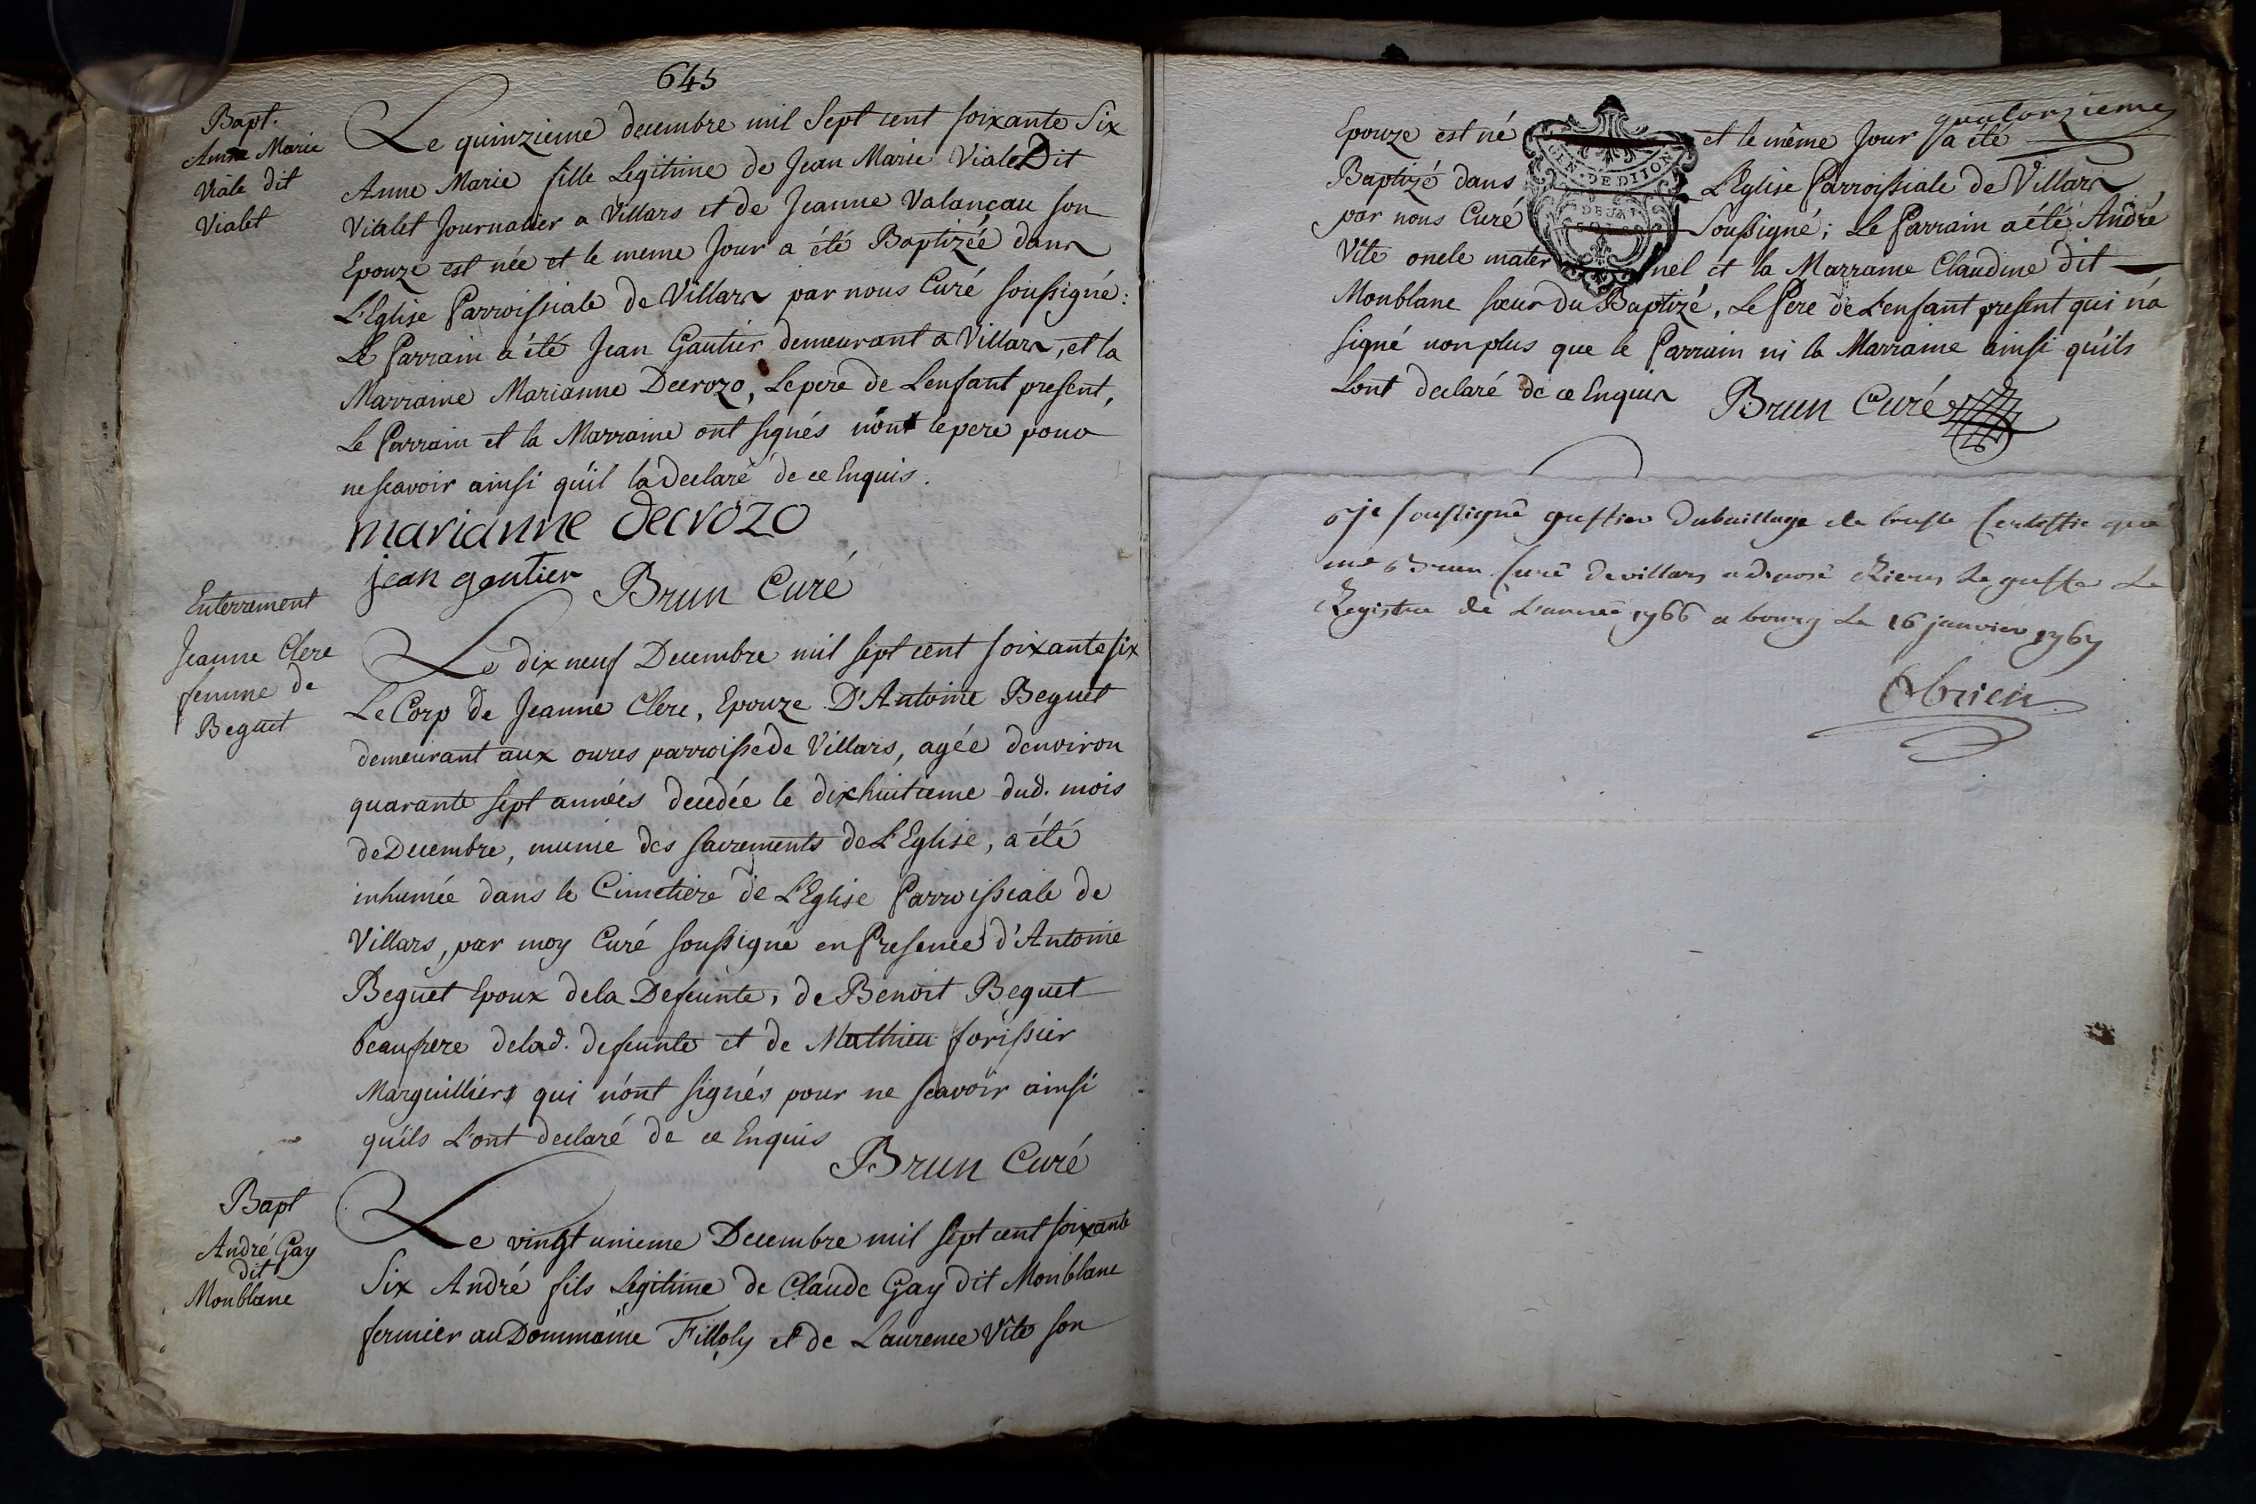 645
Bapt.
Anne Marie
Viale dit
Vialet
Le quinzieme decembre mil sept cent soixante six
Anne Marie fille Legitime de Jean Marie Viale Dit
Vialet Journalier a Villars et de Jeanne Valancau son
Epouze est née et le meme Jour a été Baptizéé dans
L'Eglise Parroissiale de Villars par nous Curé soussigné:
Le Parrain a été Jean Gautier demeurant a Villars, et la
Marraine Marianne Decrozo, Le pere de L'enfant present,
Le Parrain et la Marraine ont signés nont le pere pour
ne scavoir ainsi qu'il la Declaré de ce Enquis.
marianne decrozo
jean gautier Brun Curé
Enterrement
Jeanne Clerc
femme de
Beguet
Le dix neuf Decembre mil sept cent soixante six
Le Corp de Jeanne Clerc, Epouze D'Antoine Beguet
demeurant aux oures parroisse de Villars, agée denviron
quarante sept années decedée le dixhuitieme dud. mois
de Decembre, munie des sacrements de L'Eglise, a été
inhumée dans le Cimetiere de L'Eglise Parroissiale de
Villars, par moy Curé soussigné en Presence d'Antoine
Beguet Epoux dela Defeunte, de Benoit Beguet
beaufrere delad. defeunte et de Mathieu forissier
Marguilliers qui n'ont signés pour ne scavoir ainsi
qu'ils L'ont declaré de ce Enquis
Brun Curé
Bapt
André Gay
dit
Monblanc
Le vingt unieme Decembre mil sept cent soixante
Six André fils Legitime de Claude Gay dit Monblanc
fermier au Dommaine Filloly et de Laurence Vite son
quatorzieme
Epouze est né et le même Jour a été
Baptizé dans L'Eglise Parroissiale de Villars
par nous Curé Soussigné; Le Parrain a été André
Vite oncle maternel et la Marraine Claudine dit
Monblanc sœur du Baptizé, Le Pere de L'enfant present qui n'a
signé non plus que le Parrain ni la Marraine ainsi qu'ils
Lont declaré de ce Enquis Brun Curé
GEN. DE DIJON
DEUX
je soussigné greffier du bailliage de bresse Certiffie que
me Brun Curé de villars a deposé Rieres le greffe Le
Registre de L'année 1766 a bourg Le 16 janvier 1767
Obrien